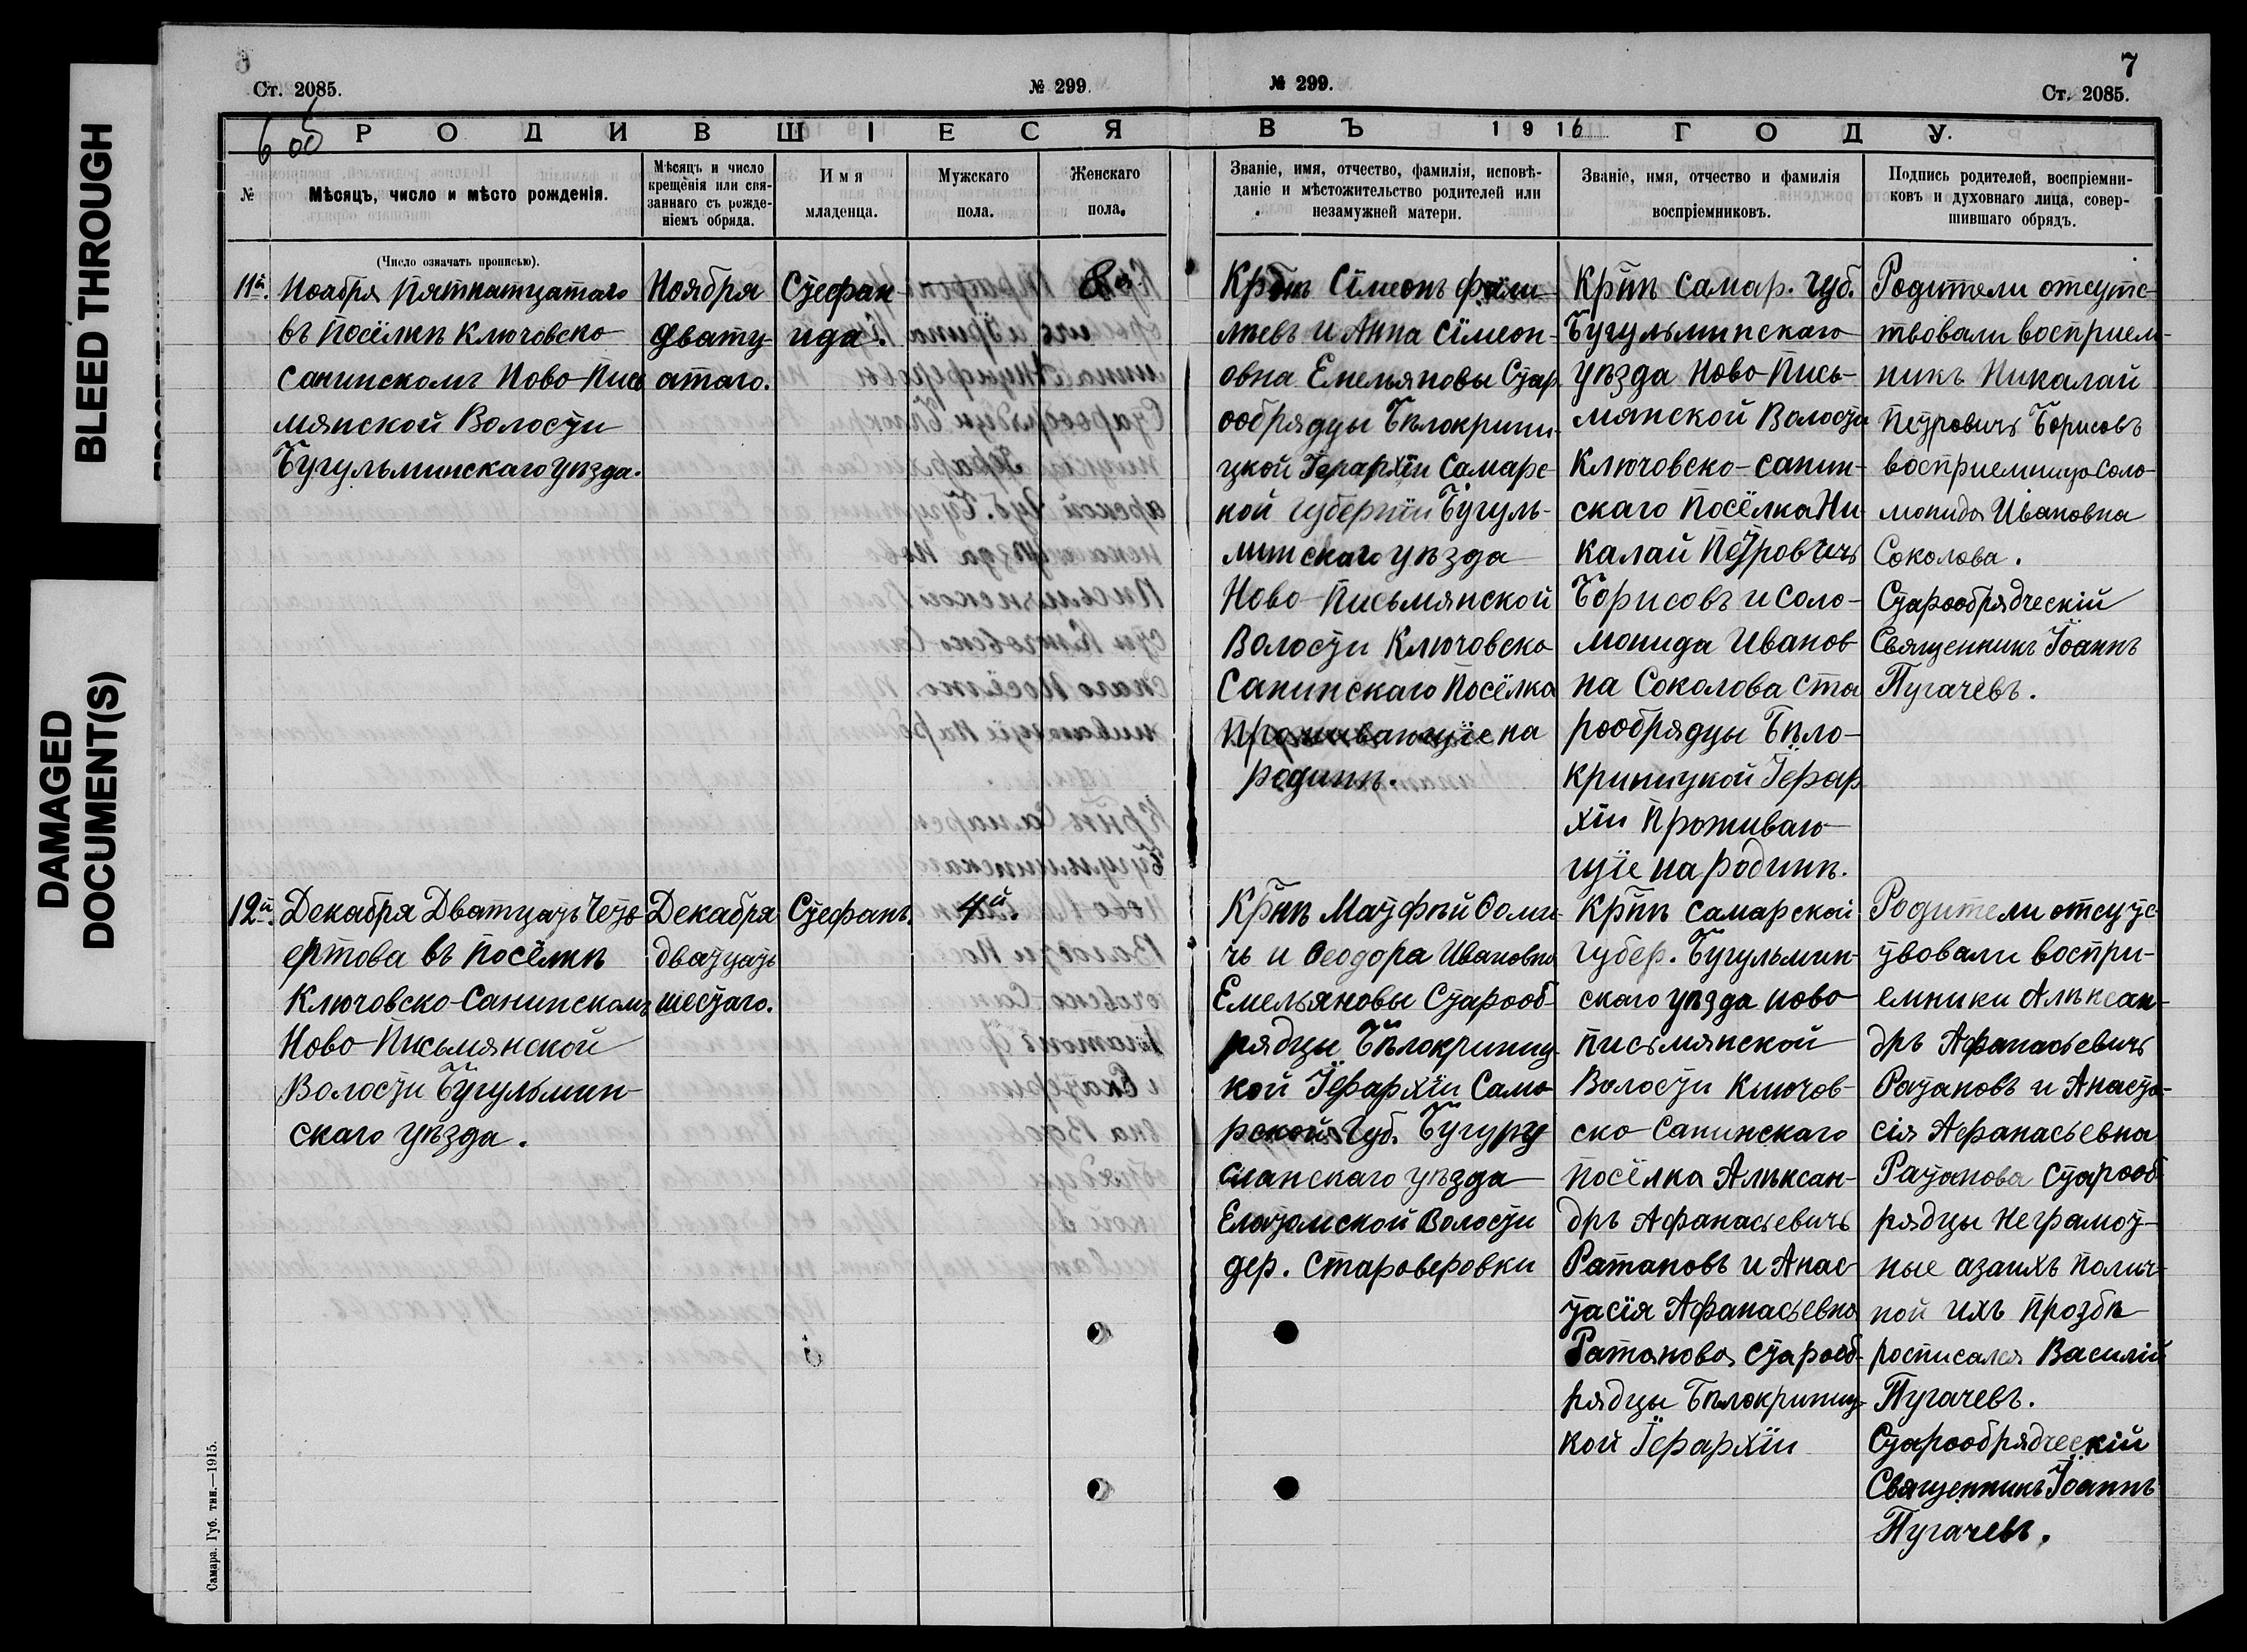 BLEED THROUGH
DAMAGED
DOCUMENT(S)
Ст. 2085.
№ 299.
№ 299.
7
Ст. 2085.
РОДИВШІЕСЯ
ВЪ 1916 ГОДУ.
№
Мѣсяцъ, число и мѣсто рожденія.
Мѣсяцъ и число
крещенія или свя-
заннаго съ рожде-
ніемъ обряда.
Имя
младенца.
Мужскаго
пола.
Женскаго
пола.
Званіе, имя, отчество, фамилія, исповѣ-
даніе и мѣстожительство родителей или
незамужней матери.
Званіе, имя, отчество и фамилія
воспріемниковъ.
Подпись родителей, воспріемни-
ковъ и духовнаго лица, совер-
шившаго обрядъ.
(Число означать прописью).
11й.
Ноября Пятнатцатаго
въ Посёлкѣ Ключовско
Санинскомъ Ново-Пись
мянской Волости
Бугульминскаго уѣзда.
Ноября
двату
атаго.
Стефан
ида.
8я
Крѣтн Сімеонъ
лѣевъ и Анна Сімеон-
овна Емельяновы Стар
ообрядцы Бѣлокрини-
цкой Іерархіи Самарс-
кой Губерніи Бугуль-
минскаго уѣзда
Ново-Письмянской
Волости Ключовско
Санинскаго Посёлка
Проживающіе на
родинѣ.
Крпн Самар. Губ.
Бугульминскаго
уѣзда Ново-Пись-
мянской Волости
Ключовско-санин-
скаго Посёлка Ни
калай Петровичъ
Борисовъ и Соло-
монида Иванов
на Соколова Ста
рообрядцы Бѣло-
криницкой Іерар
хіи Проживаю-
щіе на родинѣ.
Родители отсутс-
твовали восприем-
никъ Никалай
Петровичъ Борисовъ
восприемница Соло-
монида Ивановна
Соколова.
Старообрядческій
Священникъ Іоаннъ
Пугачевъ.
12й.
Декабря Дватцать Четв
ертова въ Посёлкѣ
Ключовско-Санинскомъ
Ново-Письмянской
Волости Бугульмин-
скаго уѣзда.
Декабря
дватцать
шестаго.
Стефанъ.
4й.
Крпн Матфѣй Фоми
чь и Феодора Ивановна
Емельяновы Старооб-
рядцы Бѣлокриниц-
кой Іерархіи Сама
рской Губ. Бугуру
сланскаго уѣзда
Елатомской Волости
дер. Староверовки
Крпн Самарской
губер. Бугульмин-
скаго уѣзда ново
письмянской
Волости Ключов-
ско-Санинскаго
Посёлка Алѣксан-
дръ Афанасьевичъ
Ратановъ и Анас
тасія Афанасьевна
Ратанова старооб-
рядцы Бѣлокриниц-
кой Іерархіи
Родители отсутс-
твовали воспри-
емники Алѣксан-
дръ Афанасьевичъ
Ратановъ и Анаста-
сія Афанасьевна
Ратанова Старооб
рядцы Неграмот-
ные азаихъ полич-
ной ихъ прозбѣ
росписался Василій
Пугачевъ.
Старообрядческій
Священникъ Іоаннъ
Пугачевъ.
Самара. Губ. тип.—1915.